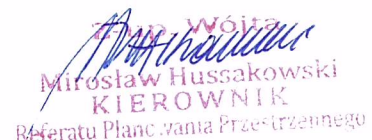 z up. Wójta
Mirosław Hussakowski
KIEROWNIK
Referatu Planowania Przestrzennego